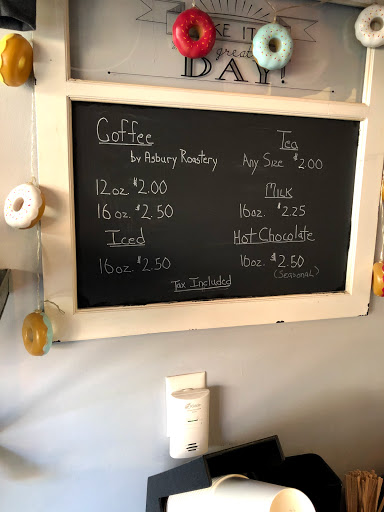 MAKE IT A
great
DAY!
Coffee
by Asbury Roastery
12 oz. $2.00
16 oz. $2.50
Iced
16 oz. $2.50
Tea
Any Size $2.00
Milk
16oz. $2.25
Hot Chocolate
16oz. $2.50
(Seasonal)
Tax Included